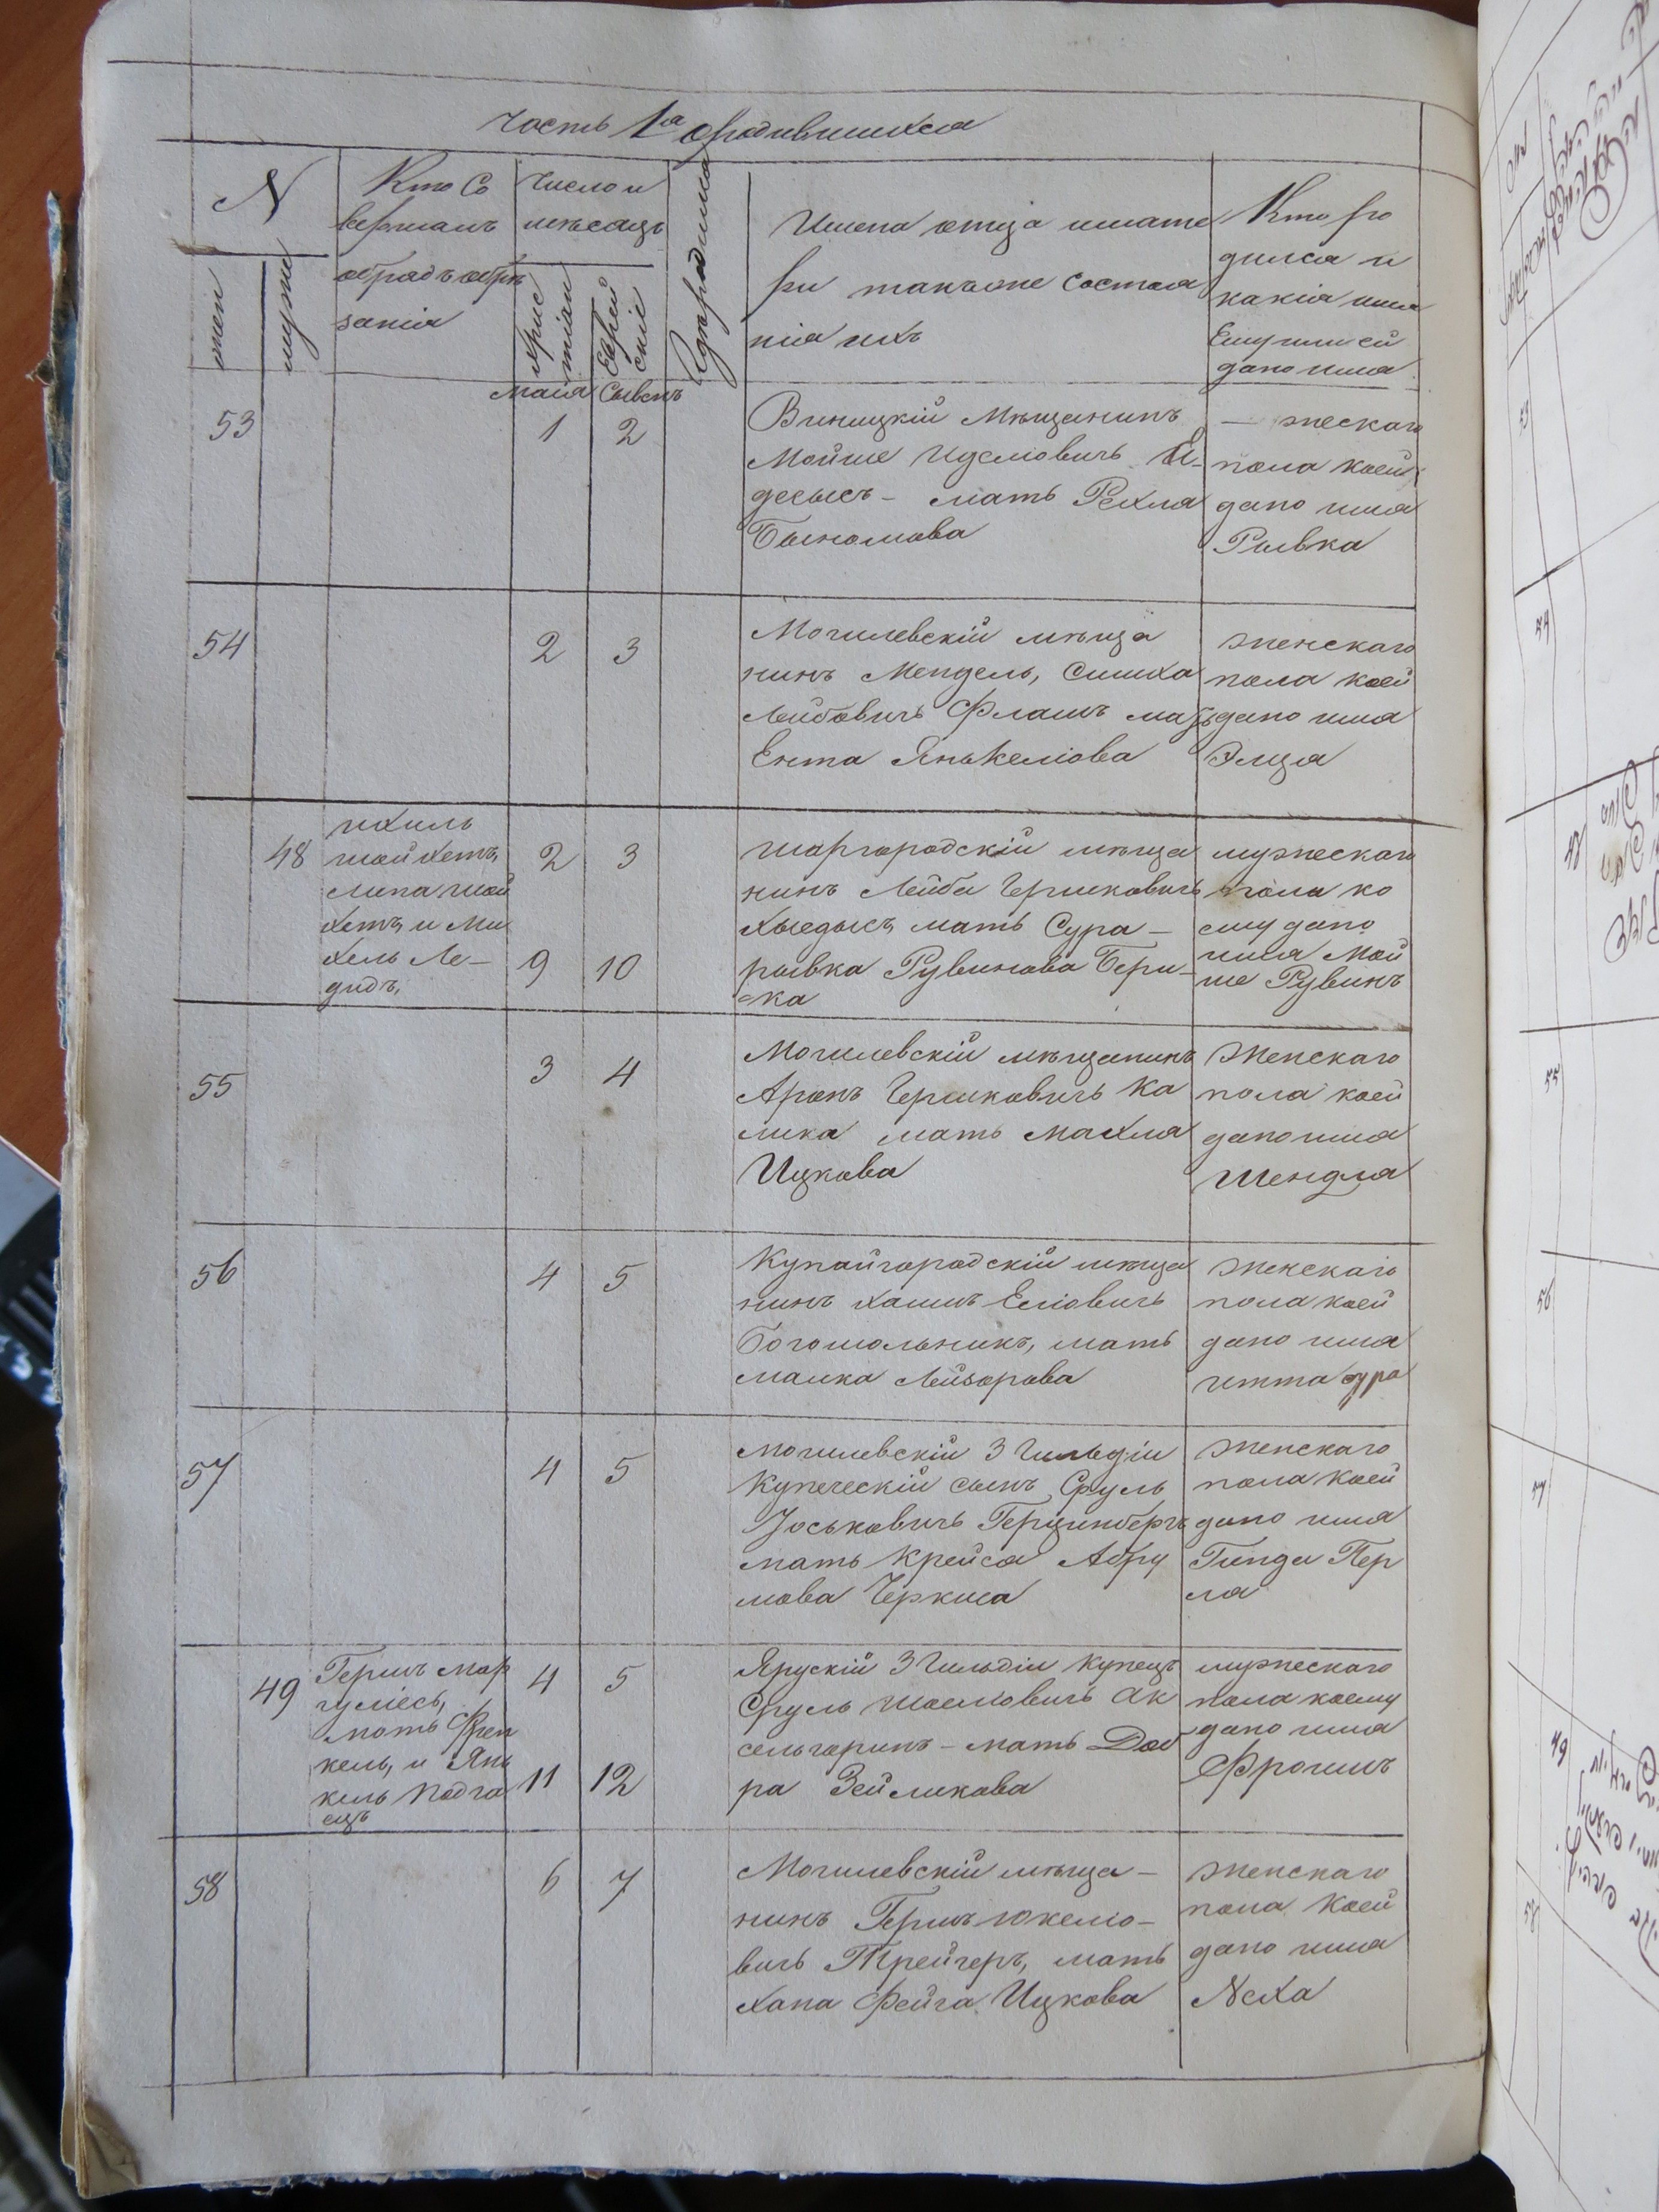 Часть 1а о родившихся
N
жен
муже
Кто Со
вершалъ
обрядъ обрѣ
занія
Число и
мѣсяцъ
хрис
тіан
Еврей
скіе
Где родился
Имена отца и мате
ри также состоя
нія ихъ
Кто ро
дился и
какія имя
Ему или ей
дано имя
Маія Сывенъ
53
1 2
Виницкій Мѣщанинъ
Мойше Иделіовичъ
мать Рехля
— жескаго
пола коей
дано имя
Рывка
54
2 3
Могилевскій мѣща
нинъ Мендель, Симха
Лейбовичъ Флашъ мать
Ента Янькеліова
женскаго
пола коей
дано имя
Элця
48
Ихиль
шойхетъ,
Липа шой
хетъ, и Ми
хель Ле-
дидъ,
2 3
9 10
Шаргородскій мѣща
нинъ Лейба Гершковичъ
мать Сура —
рывка Рувинова Бери-
ка
мужескаго
пола ко
ему дано
имя Мой
ше Рувинъ
55
3 4
Могилевскій мѣщанинъ
Аронъ Гершковичъ Ка
лика мать Махля
Ицкова
Женскаго
пола коей
дано имя
Шендля
56
4 5
Купайгородскій мѣща
нинъ Хаимъ Еліовичъ
Богомольникъ, мать
Малка Лейзорова
женскаго
пола коей
дано имя
Итта сура
57
4 5
Могилевскій 3 Гильдіи
Купеческій сынъ Сруль
Іоськовичъ Герцинбергъ
мать Крейся Абру
мова Черкиса
женскаго
пола коей
дано имя
Гинда Пер
ля
49
Гершъ Мар
гуліесъ,
Мотъ Френ
кель, и Янь
кель Подго
ецъ
4 5
11 12
Ярускій 3 Гильдіи Купецъ
Сруль Шоеліовичъ Ак
сельгоринъ — мать Доб
ра Зейликова
мужескаго
пола коему
дано имя
Фроимъ
58
6 7
Могилевскій мѣща —
нинъ Гершъ Юкеліо —
вичъ Трейгеръ, мать
Хана Фейга Ицкова
женскаго
пола коей
дано имя
Неха